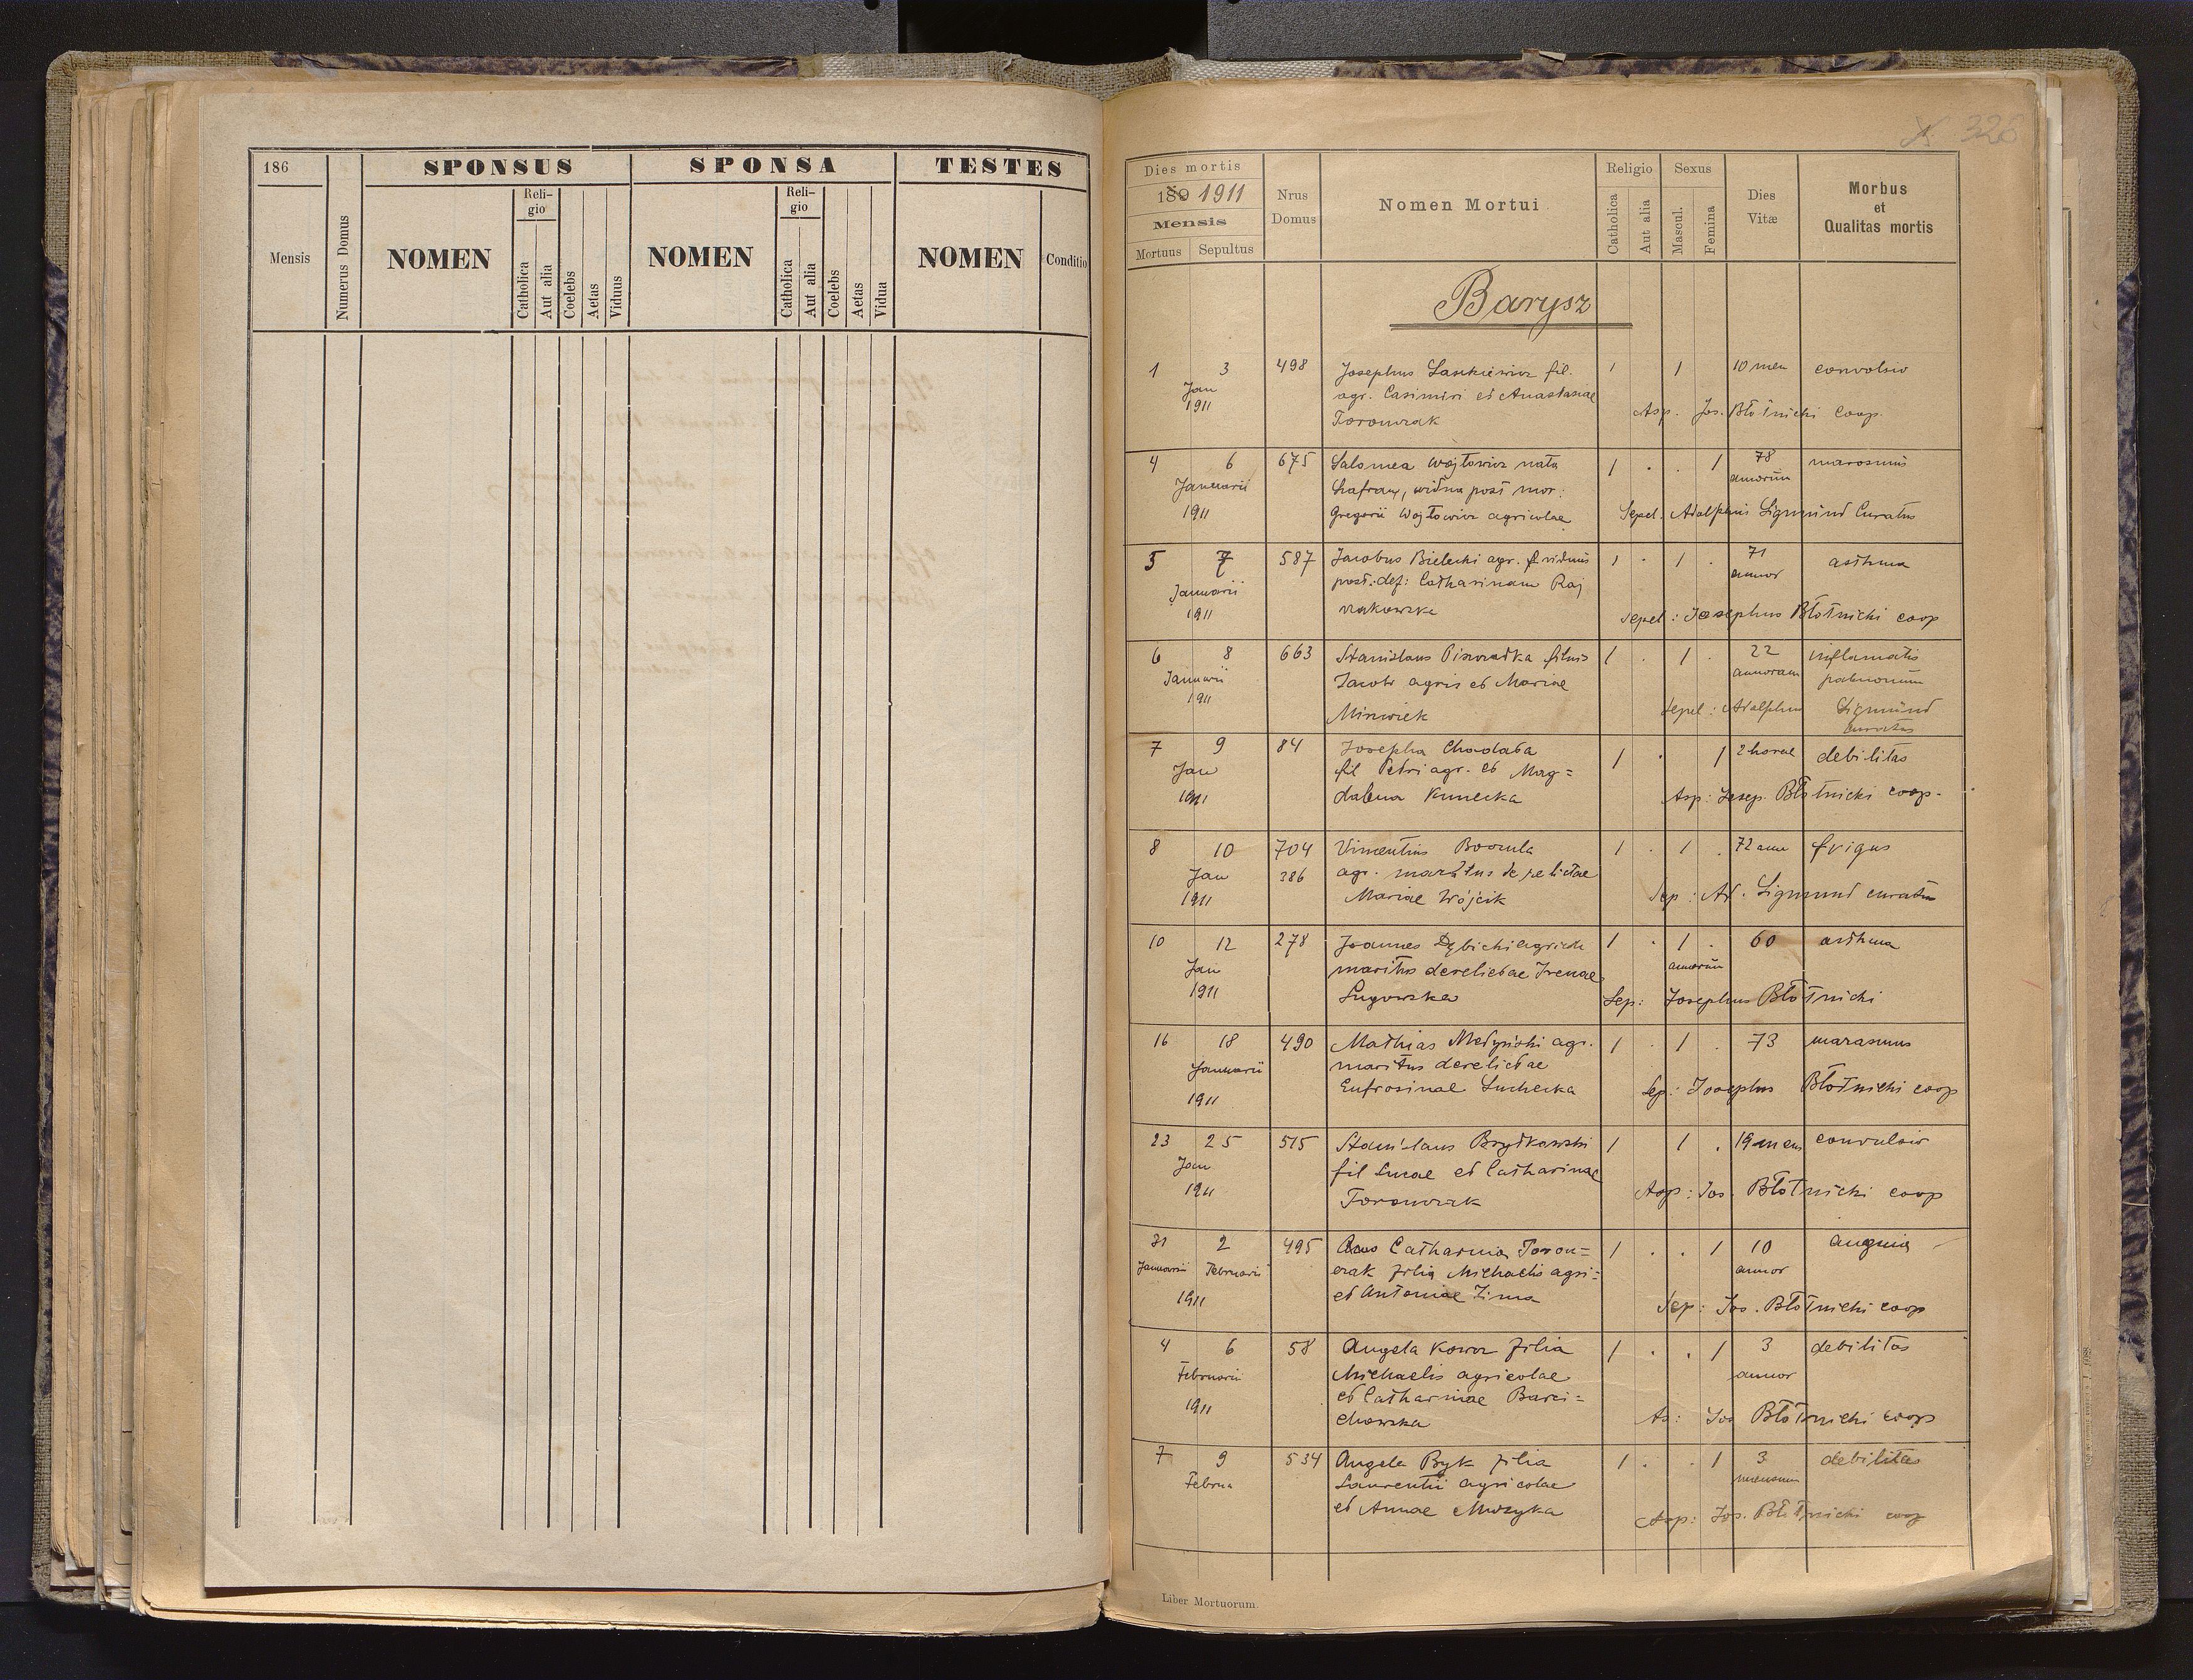 186
SPONSUS
SPONSA
TESTES
Mensis
Numerus Domus
NOMEN
Religio
Catholica
Aut alia
Coelebs
Aetas
Viduus
NOMEN
Religio
Catholica
Aut alia
Coelebs
Aetas
Vidua
NOMEN
Conditio
326
Dies mortis
189 1911
Mensis
Mortuus Sepultus
Nrus
Domus
Nomen Mortui
Religio
Catholica
Aut alia
Sexus
Mascul.
Femina
Dies
Vitæ
Morbus
et
Qualitas mortis
Barysz
1 3 498 Josephus Laszkiewicz fil. 1 1 10 men convolsio
Jan
1911
agr. Casimiri et Anastasiae
Asp. Jos. Błotnicki coop.
Toronczak
4 6 675 Salomea Wojtowicz nata 1 . . 1 78 marasmus
Januarii
annorum
1911
Szafran, vidua post mor:
Gregorii Wojtowicz agricolae
Sepel. Adolphus Sigmund Curatus
5 7 587 Jacobus Bielecki agr. viduus 1 . 1 . 71 asthma
Januarii
annor
1911
post. def: Catharinam Raj
czakowska
sepel: Josephus Błotnicki coop
6 8 663 Stanislaus filius 1 . 1 . 22 inflamatio
Januarii
annorum pulmonum
1911
Jacobi agris et Mariae
Sepel: Adolphus Sigmund
curatus
7 9 84 Josepha Chodaba 1 . 1 2 horae debilitas
Jan
1911
fil Petri agr. et Mag=
dalena Kunecka
Asp: Josep. Błotnicki coop.
8 10 704 Vincentius 1 . 1 . 72 ann frigus
Jan 386
1911
agr. maritus derelictae
Mariae Wójcik
Sep: Ad. Sigmund curatus
10 12 278 Joannes Dębicki agricola 1 . 1 . 60 asthma
Jan
annorum
1911
maritus derelictae Irenae
Ługowska
Sep: Josephus Błotnicki
16 18 490 Mathias Medyński agr. 1 . 1 . 73 marasmus
Januarii
1911
maritus derelictae
Eufrosinae Suchecka
Sep: Josephus Błotnicki coop
23 25 515 Stanislaus Brydkowski 1 1 . 19 men convulsio
Jan
1911
fil Lucae et Catharinae
Toronczak
Asp: Jos. Błotnicki coop
31 2 495 Catharina Toron= 1 . . 1 10 angina
Januarii Februarii
annor
1911
czak filia Michaelis agri=
et Antoniae Zima
Sep: Jos. Błotnicki coop
4 6 58 Angela Kowcz filia 1 . . 1 3 debilitas
Februarii
annor
1911
Michaelis agricolae
et Catharinae Barci=
chowska
As: Jos Błotnicki coop
7 9 534 Angela Byk filia 1 . . 1 3 debilitas
Februa
mensium
Laurentii agricolae
et Annae Muzyka
Asp: Jos. Błotnicki coop
Liber Mortuorum.